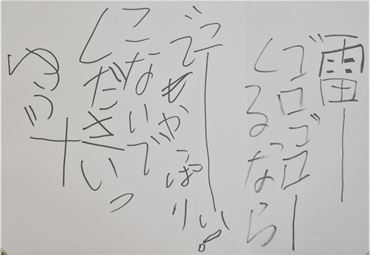 雷ー
ゴロゴロー
くるなら
こーい!
でもやっぱり
こないで
くださいっ